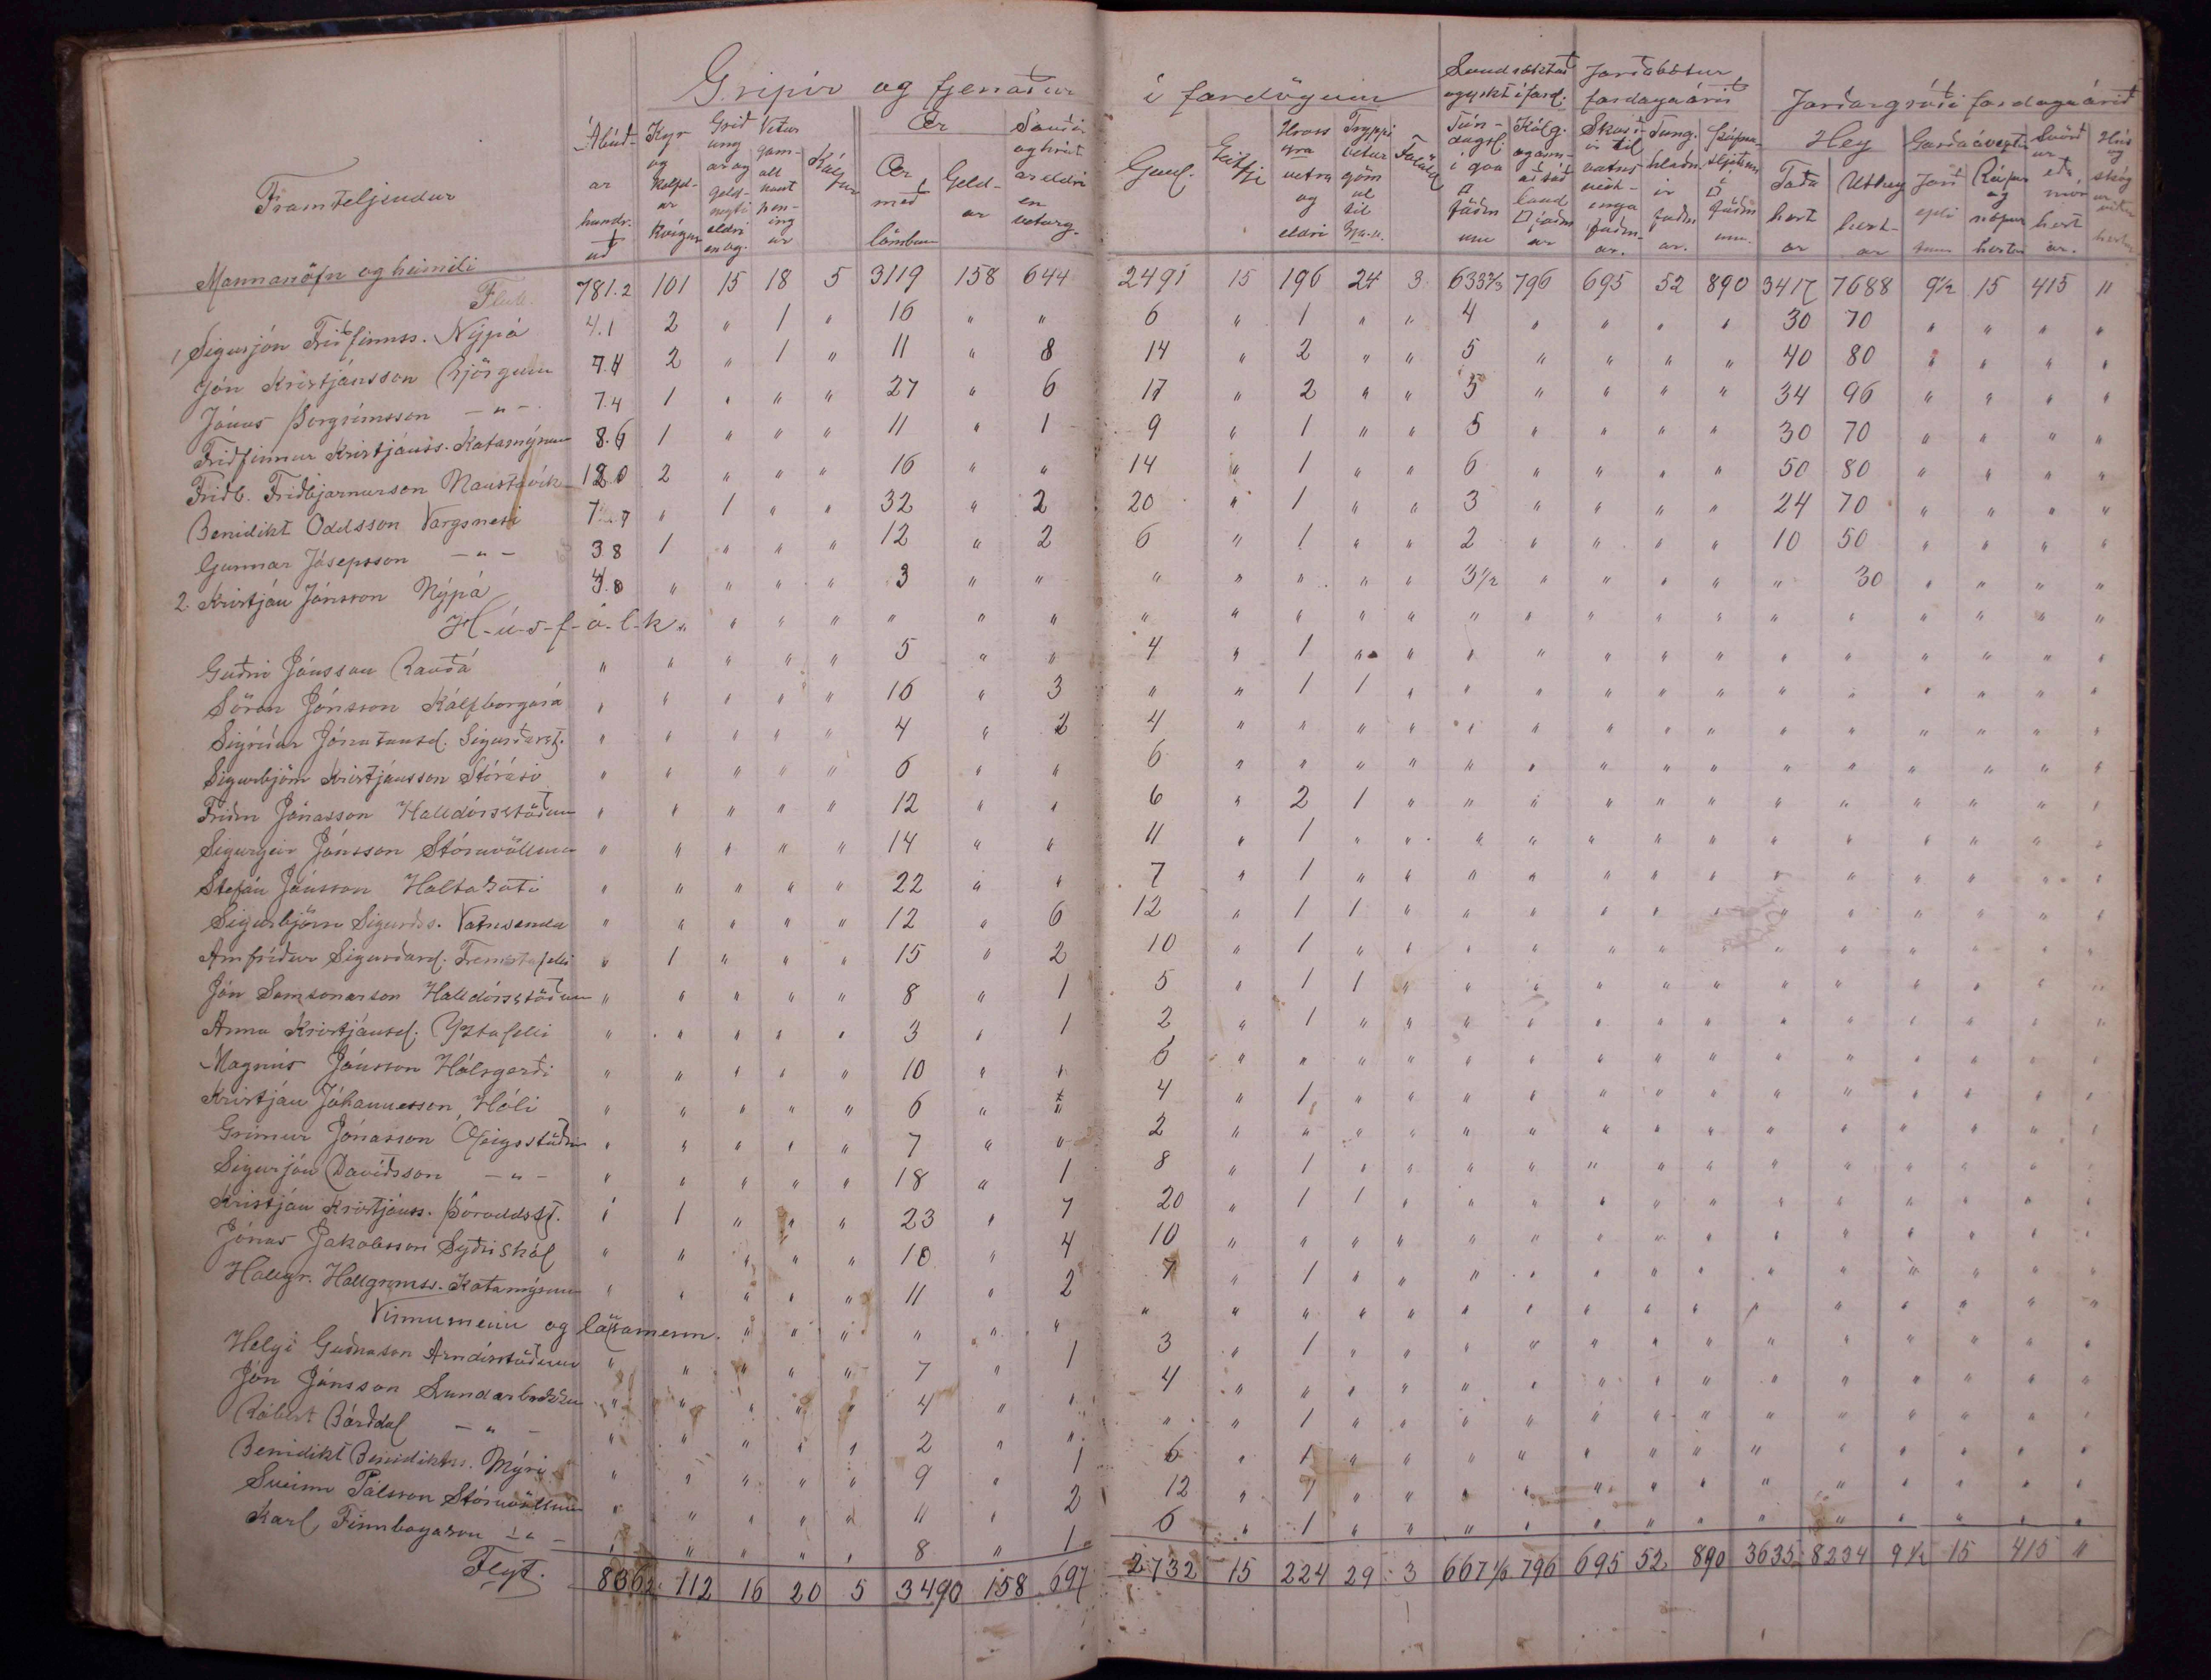 Gripir og fjenaður í fardögum
Sáud
ogyrkt í fard.
Jarðabótur
fardagaárið
Jarðargróði fardagaárið
Framteljendur
Mannanöfn og heimili
Ábúð-
ar
hundr-
uð
Kýr
og
kelfd-
ar
Kvígur
Grið
ung
ar og
geld-
neyti
eldri
en
Vetur
gam-
all
naut
pen-
ing
ur
Kálfur
Ær
Ær
með
lömbum
Geld-
ar
Sauðir
og hrút
ar eldri
en
veturg.
Geml.
Geitfje
Hross
4ra
vetra
og
eldri
Tryppi
vetur
göm
ul
til
Folöld
Tún-
í
□
föðm
um
Kálg.
land
□ föðm
ar
Skurð-
ir til
vatns
veit-
enga
faðm-
ar.
Túng.
hleðn.
ir
faðm
ar.
Þúfna-
sljettun
í
□
föðm
um.
Hey
Taða
hest
ar
Úthey
hest-
ar
Garðaávöxtur
Jarð
epli
tunn
Rófur
og
næpur
Svörð
ur
eða
mór
hest
ar.
Hrís
og
skóg
ar
viður
hestar
Flutt. 781.2 101 15 18 5 3119 158 644 2491 15 196 24 3 633⅔ 796 695 52 890 3417 7688 9½ 15 415 "
1 Sigurjón Friðfinnss. Nýpá 4.1 2 " 1 " 16 " " 6 " 1 " " 4 " " " " 30 70 " " " "
Jón Kristjánsson Björgum 7.4 2 " 1 " 11 " 8 14 " 2 " " 5 " " " " 40 80 " " " "
Jónas Þorgrímsson - " - 7.4 1 " " " 27 " 6 17 " 2 " " 5 " " " " 34 96 " " " "
Friðfinnur Kristjánss. Kotamýrum 8.6 1 " " " 11 " 1 9 " 1 " " 5 " " " " 30 70 " " " "
Friðb. Friðbjarnarson Naustavík 12.0 2 " " " 16 " " 14 " 1 " " 6 " " " " 50 80 " " " "
Benidikt Oddsson Vargsnesi 7.7 " 1 " " 32 " 2 20 " 1 " " 3 " " " " 24 70 " " " "
Gunnar Jósepsson - " - 38 1 " " " 12 " 2 6 " 1 " " 2 " " " " 10 50 " " " "
2. Kristján Jónsson Nýpá 4.0 " " " " 3 " " " " " " " 3½ " " " " " 30 " " " "
H-ú-s-f-ó-l-k " " " " " " " " " " " " " " " " " " " " " " "
Guðni Jónsson Rauðá " " " " " 5 " " 4 " 1 " " " " " " " " " " " " "
Sören Jónsson Kálfborgará " " " " " 16 " 3 " " 1 1 " " " " " " " " " " " "
Sigríður Jónatansd. Sigurðarst. " " " " " 4 " 2 4 " " " " " " " " " " " " " " "
Sigurbjörn Kristjánsson Stórási " " " " " 6 " " 6 " " " " " " " " " " " " " " "
Friðm Jónasson Halldórsstöðum " " " " " 12 " " 6 " 2 1 " " " " " " " " " " " "
Sigurgeir Jónsson Stóruvöllum " " " " " 14 " " 11 " 1 " " " " " " " " " " " " "
Stefán Jónsson Holtakoti " " " " " 22 " " 7 " 1 " " " " " " " " " " " " "
Sigurbjörn Sigurðs. Vatnsenda " " " " " 12 " 6 12 " 1 1 " " " " " " " " " " " "
Arnfríður Sigurðard. Fremstafelli " 1 " " " 15 " 2 10 " 1 " " " " " " " " " " " " "
Jón Samsonarson Halldórsstöðum " " " " " 8 " 1 5 " 1 1 " " " " " " " " " " " "
Anna Kristjánsd. Yztafelli " " " " " 3 " 1 2 " 1 " " " " " " " " " " " " "
Magnús Jónsson Hálsgerði " " " " " 10 " " 6 " " " " " " " " " " " " " " "
Kristján Jóhannesson Hóli " " " " " 6 " " 4 " 1 " " " " " " " " " " " " "
Grímur Jónasson Ófeigsstöðum " " " " " 7 " " 2 " " " " " " " " " " " " " " "
Sigurjón Davíðsson - " - " " " " " 18 " 1 8 " 1 " " " " " " " " " " " " "
Kristján Kristjánss. Þóroddsst. " 1 " " " 23 " 7 20 " 1 1 " " " " " " " " " " " "
Jónas Jakobsson Syðriskál " " " " " 10 " 4 10 " " " " " " " " " " " " " " "
Hallgr. Hallgrímss. Kotamýrum " " " " " 11 " 2 7 " 1 " " " " " " " " " " " " "
Vinnumenn og lausamenn. " " " " " " " " " " " " " " " " " " " " "
Helgi Guðnason Arndísstöðum " " " " " 7 " 1 3 " 1 " " " " " " " " " " " " "
Jón Jónsson Lundarbrekku " " " " " 4 " " 4 " " " " " " " " " " " " " " "
Róbert Bárðdal - " - " " " " " 2 " " " " 1 " " " " " " " " " " " " "
Benidikt Benidiktss. Mýri " " " " " 9 " 1 6 " 1 " " " " " " " " " " " " "
Sveinn Pálsson Stóruvöllum " " " " " 11 " 2 12 " 7 " " " " " " " " " " " " "
Karl Finnbogason - " - " " " " " 8 " 1 6 " 1 " " " " " " " " " " " " "
Flyt. 836.2 112 16 20 5 3490 158 697 2732 15 224 29 3 667⅙ 796 695 52 890 3635 8234 9½ 15 415 "